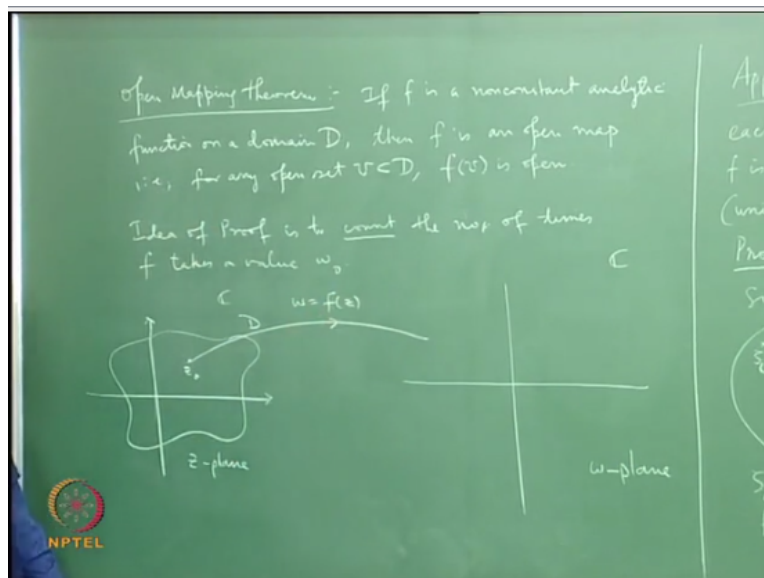 Open Mapping theorem :- If f is a nonconstant analytic
function on a domain D, then f is an open map
i.e., for any open set V⊂D, f(V) is open.
Idea of Proof is to count the no. of times
f takes a value w₀.
C
D
w = f(z)
z₀
z-plane
C
w-plane
App
eac
f is
(uni
Pro
S
NPTEL